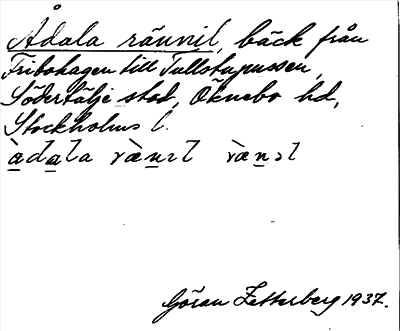 Ådala rännil, bäck från
Fribohagen till Tullstupussen,
Södertälje stad, Öknebo hd,
Stockholms l.
àdala ræ̀nıl ræ̀nɔl
Göran Zetterberg 1937.